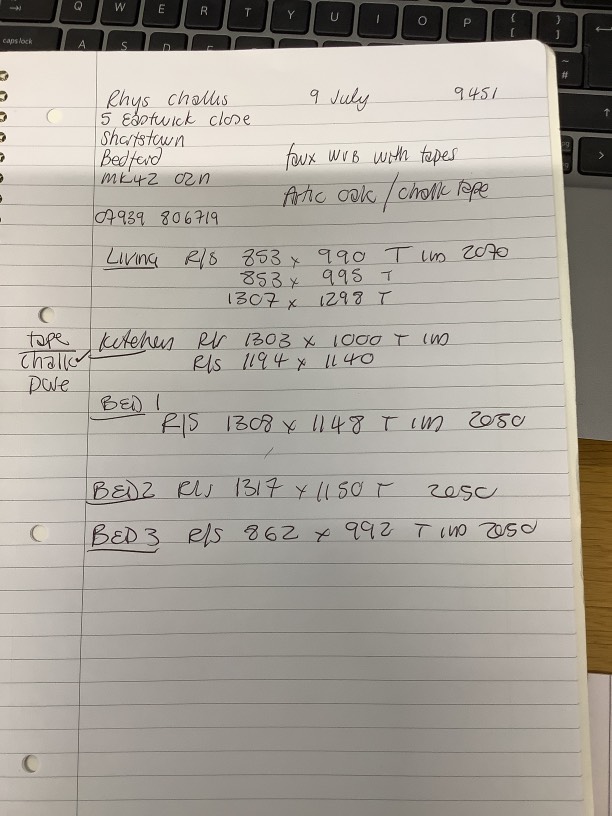 Q W E R T Y U I O P { [ } ]
caps lock A S D # ~
Rhys Challis 9 July 9451
5 Eastwick close
Shortstown
Bedford faux WVB with tapes
MK42 0ZN Artic oak / chalk tape
07939 806719
Living R/S 853 x 990 T IM 2070
853 x 995 T
1307 x 1298 T
tape kitchen R/S 1303 x 1000 T IM
chalk ✓ R/S 1194 x 1140
Dove
BED 1
R/S 1308 x 1148 T IM 2050
BED 2 R/S 1317 x 1150 T 2050
BED 3 R/S 862 x 992 T IM 2050